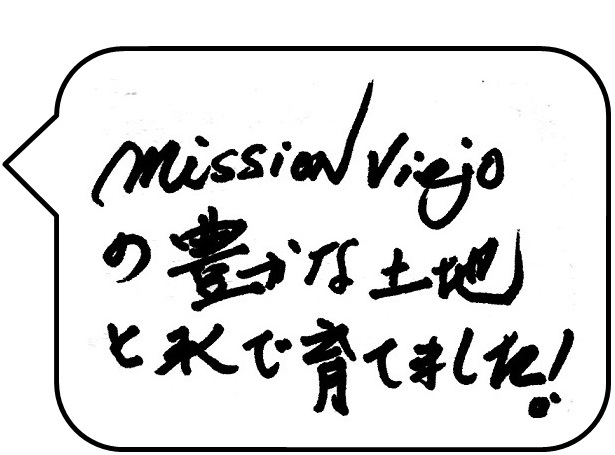 Mission Viejo
の豊かな土地
と水で育てました!